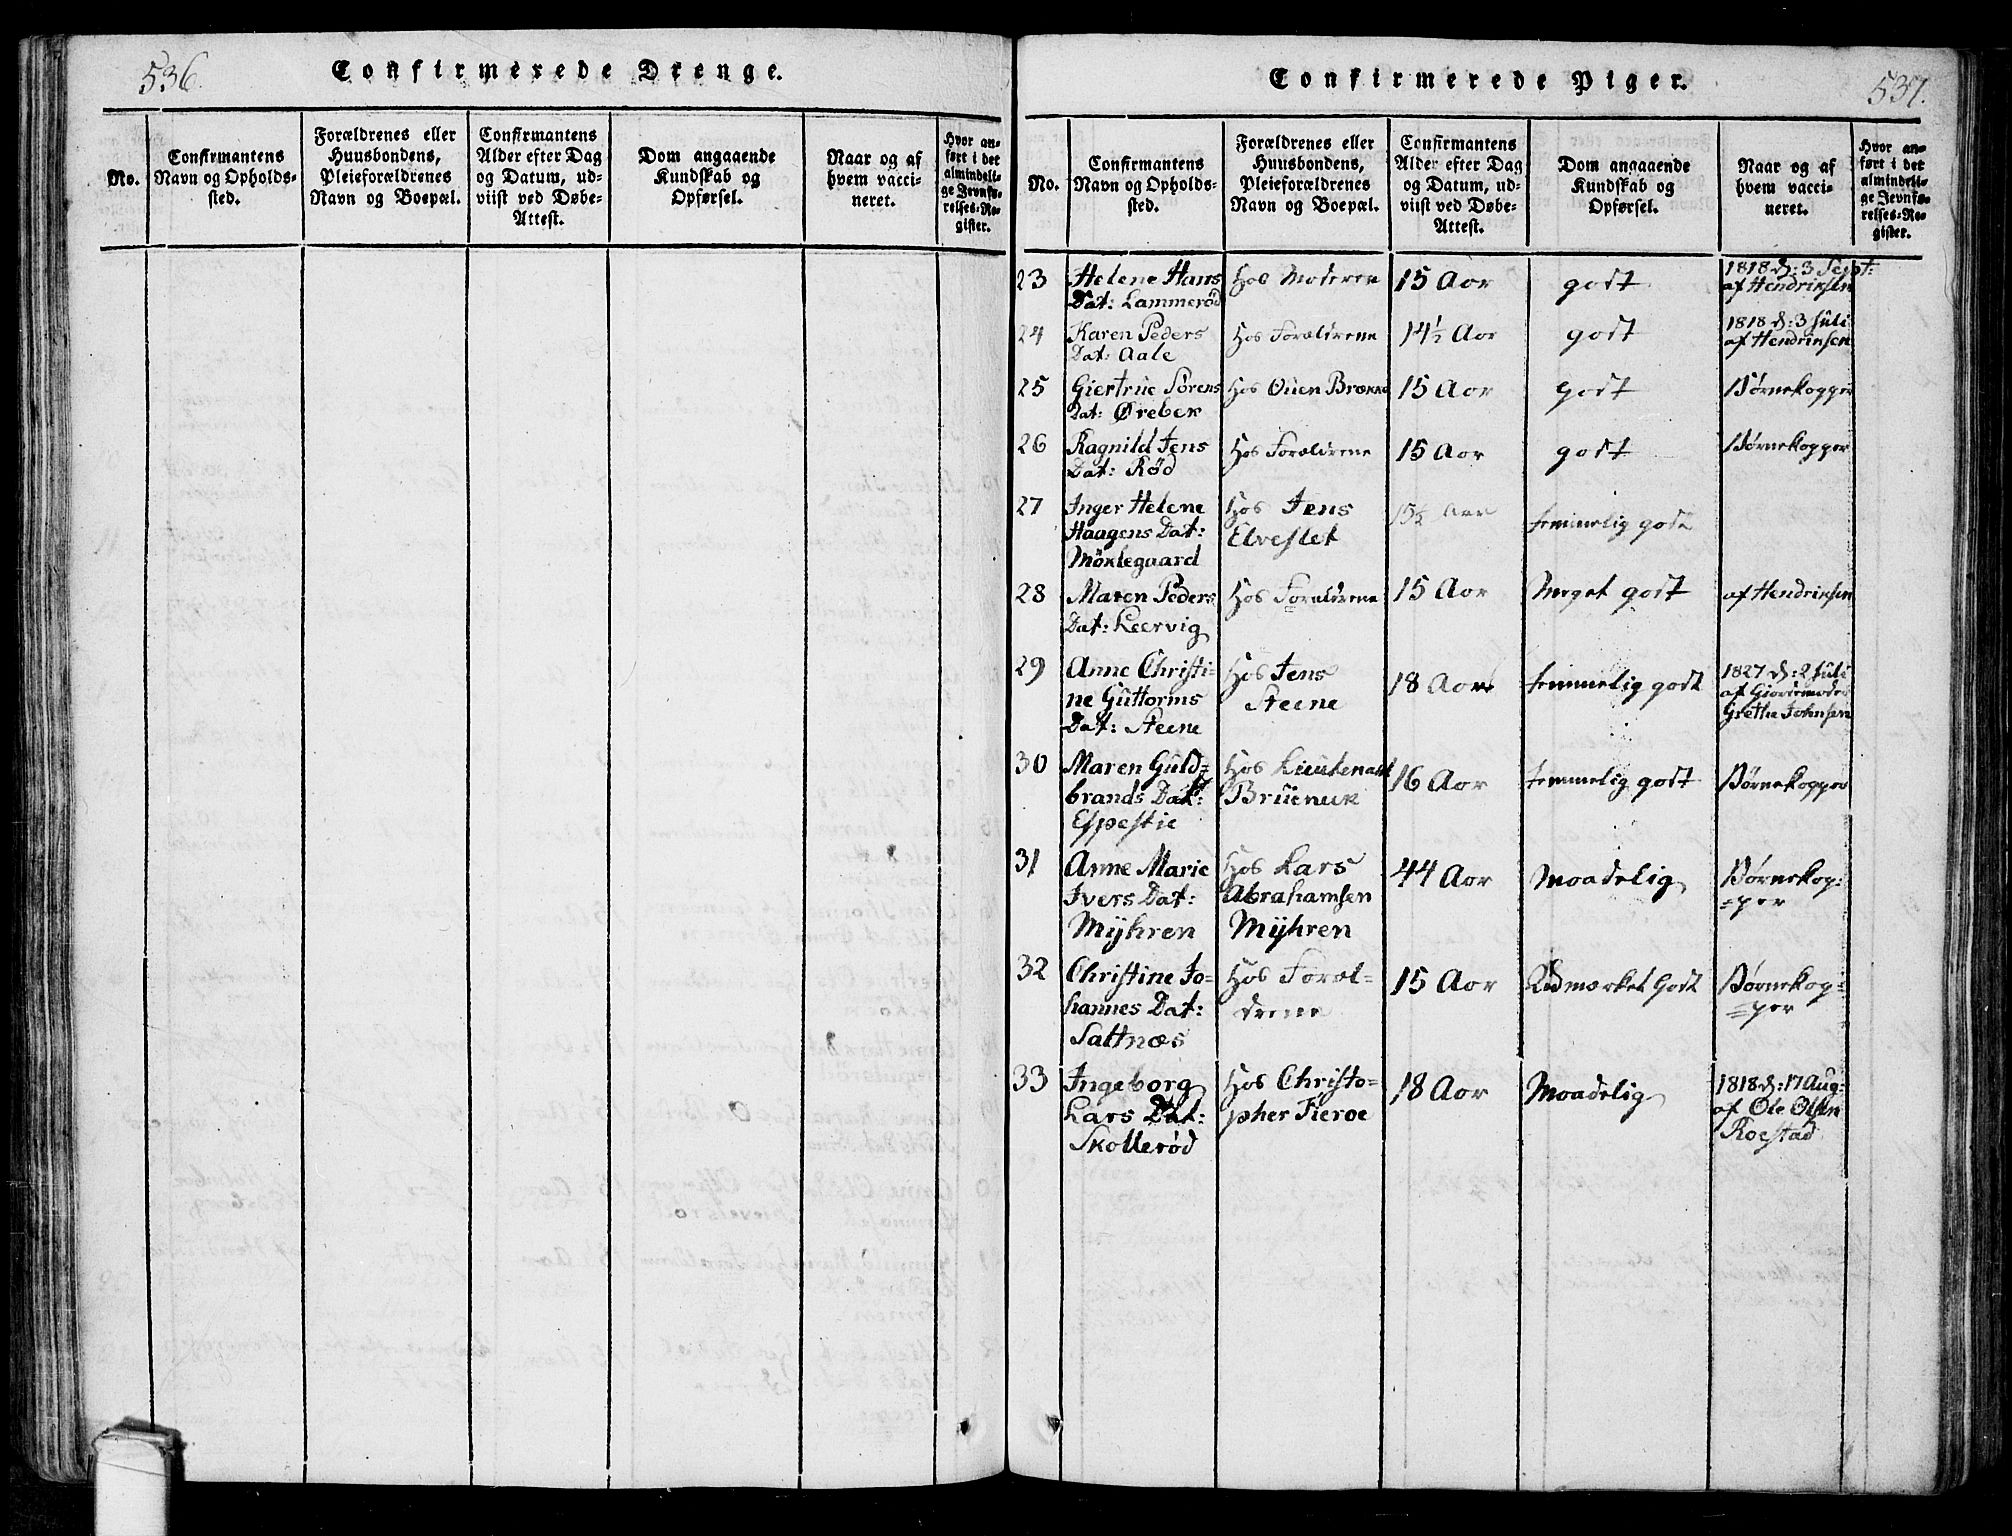 536.
Confirmerede Drenge.
No.
Confirmantens
Navn og Opholds-
sted.
Forældrenes eller
Huusbondens,
Pleieforældrenes
Navn og Boepæl.
Confirmantens
Alder efter Dag
og Datum, ud-
viist ved Døbe-
Attest.
Dom angaaende
Kundskab og
Opførsel.
Naar og af
hvem vacci-
neret.
Hvor an-
ført i det
almindeli-
ge Jevnfø-
relses-Re-
gister.
Confirmerede Piger.
537.
No.
Confirmantens
Navn og Opholds-
sted.
Forældrenes eller
Huusbondens,
Pleieforældrenes
Navn og Boepæl.
Confirmantens
Alder efter Dag
og Datum, ud-
viist ved Døbe-
Attest.
Dom angaaende
Kundskab og
Opførsel.
Naar og af
hvem vacci-
neret.
Hvor an-
ført i det
almindeli-
ge Jevnfø-
relses-Re-
gister.
23
Helene Hans
Dat: Lammerød
Hos Moderen
15 Aar
godt
1818 d: 3 Sept:
af Hendriksen
24
Karen Peders
Dat: Aale
Hos Forældrene
14½ Aar
godt
1818 d: 3 Juli
af Hendriksen
25
Giertrue Sörens
Dat: Ørebek
Hos Ouen Brække
15 Aar
godt
Børnekopper
26
Ragnild Jens
Dat: Rød
Hos Forældrene
15 Aar
godt
Børnekopper
27
Inger Helene
Haagens Dat:
Möklegaard
Hos Jens
Elveslet
15½ Aar
temmelig godt
28
Maren Peders
Dat: Leervig
Hos Forældrene
15 Aar
Meget godt
af Hendriksen
29
Anne Christi-
ne Guttorms
Dat: Steene
Hos Jens
Steene
18 Aar
temmelig godt
1827 d: 2 Juli
af Giordemoder
Grethe Johnsen
30
Maren Guld=
brands Dat:
Espestie
Hos Lieutenant
16 Aar
temmelig godt
Børnekopper
31
Anne Marie
Ivers Dat:
Mÿhren
Hos Lars
Abrahamsen
Mÿhren
44 Aar
Maadelig
Børnekop:
=per
32
Christine Jo=
hannes Dat:
Saltnæs
Hos Foræl-
drene
15 Aar
Udmærket Godt
Børnekop:
=per
33
Ingeborg
Lars Dat:
Skollerød
Hos Christo=
pher Fieroe
18 Aar
Maadelig
1818 d: 17 Aug:
af Ole Olsen
Roestad